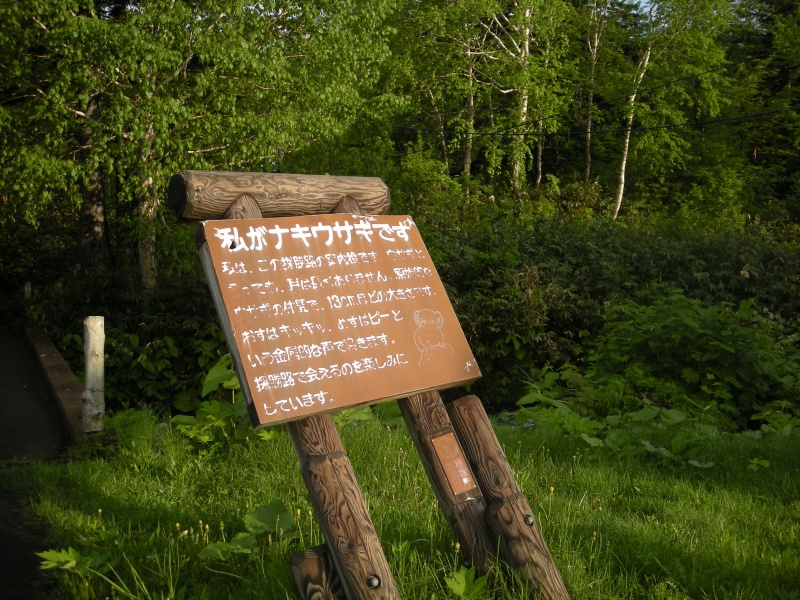 私がナキウサギです
私は、この探勝路の案内役です。ウサギと
いっても、耳は長くありません。原始的な
ウサギの仲間で、13cmほどの大きさです。
おすはキッキッ、めすはピーと
いう金属的な声で鳴きます。
探勝路で会えるのを楽しみに
しています。